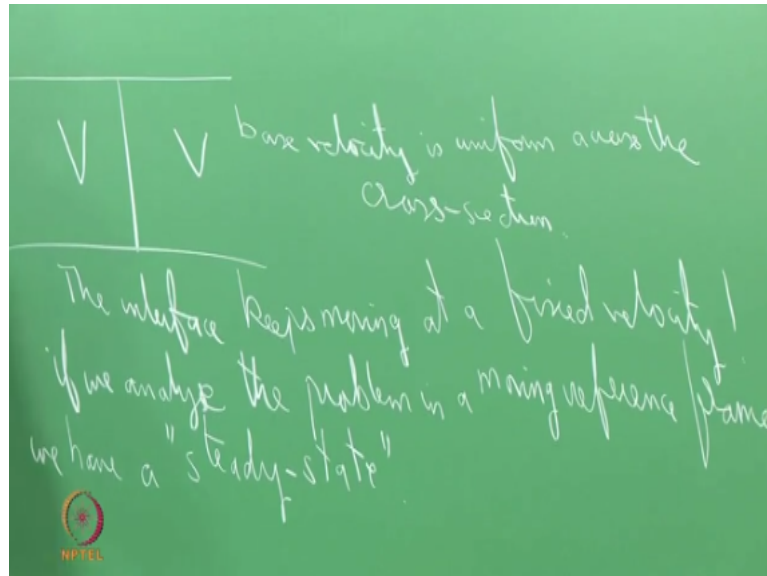 V V base velocity is uniform across the
cross-section.
The interface keeps moving at a fixed velocity!
if we analyze the problem in a moving reference frame
we have a "steady-state"
NPTEL